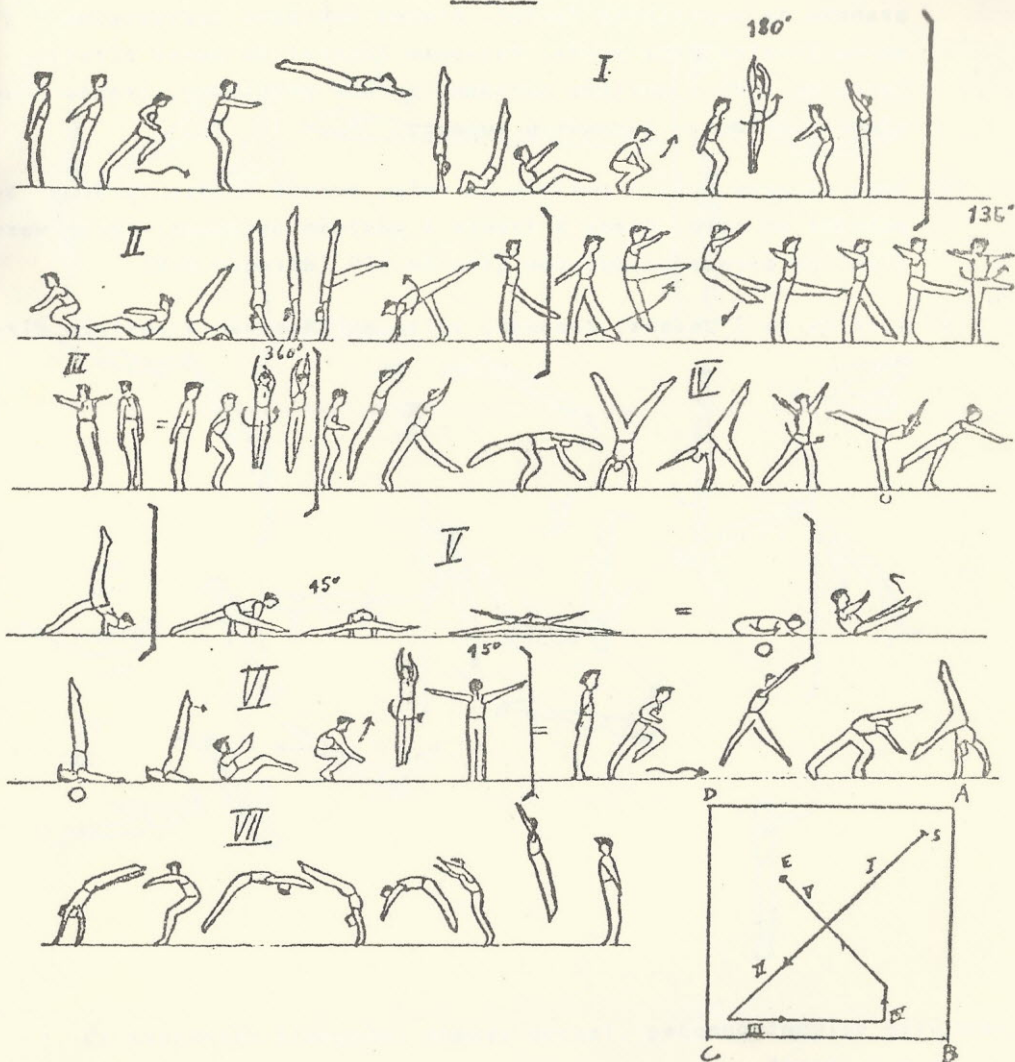 180°
I
II
135°
III
360°
=
IV
V
45°
=
VI
45°
=
VII
D
A
S
I
E
V
II
III
IV
C
B